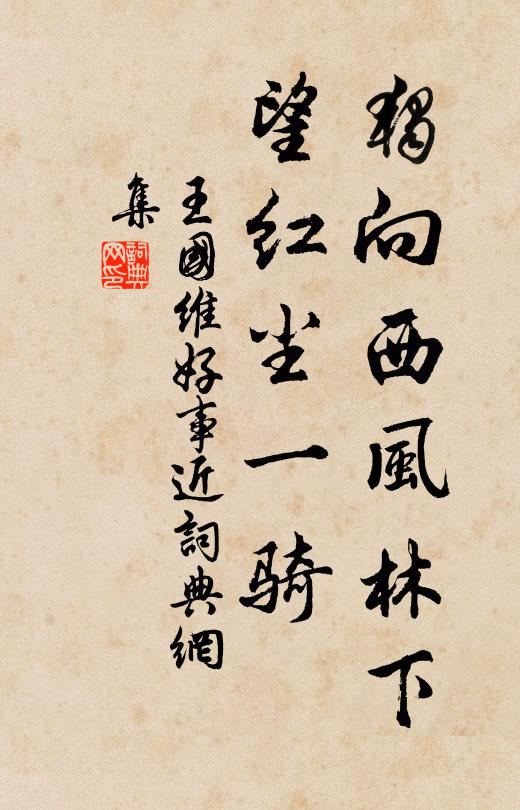 獨向西風林下
望红尘一骑
王國維好事近詞典網
集
詞典
网印